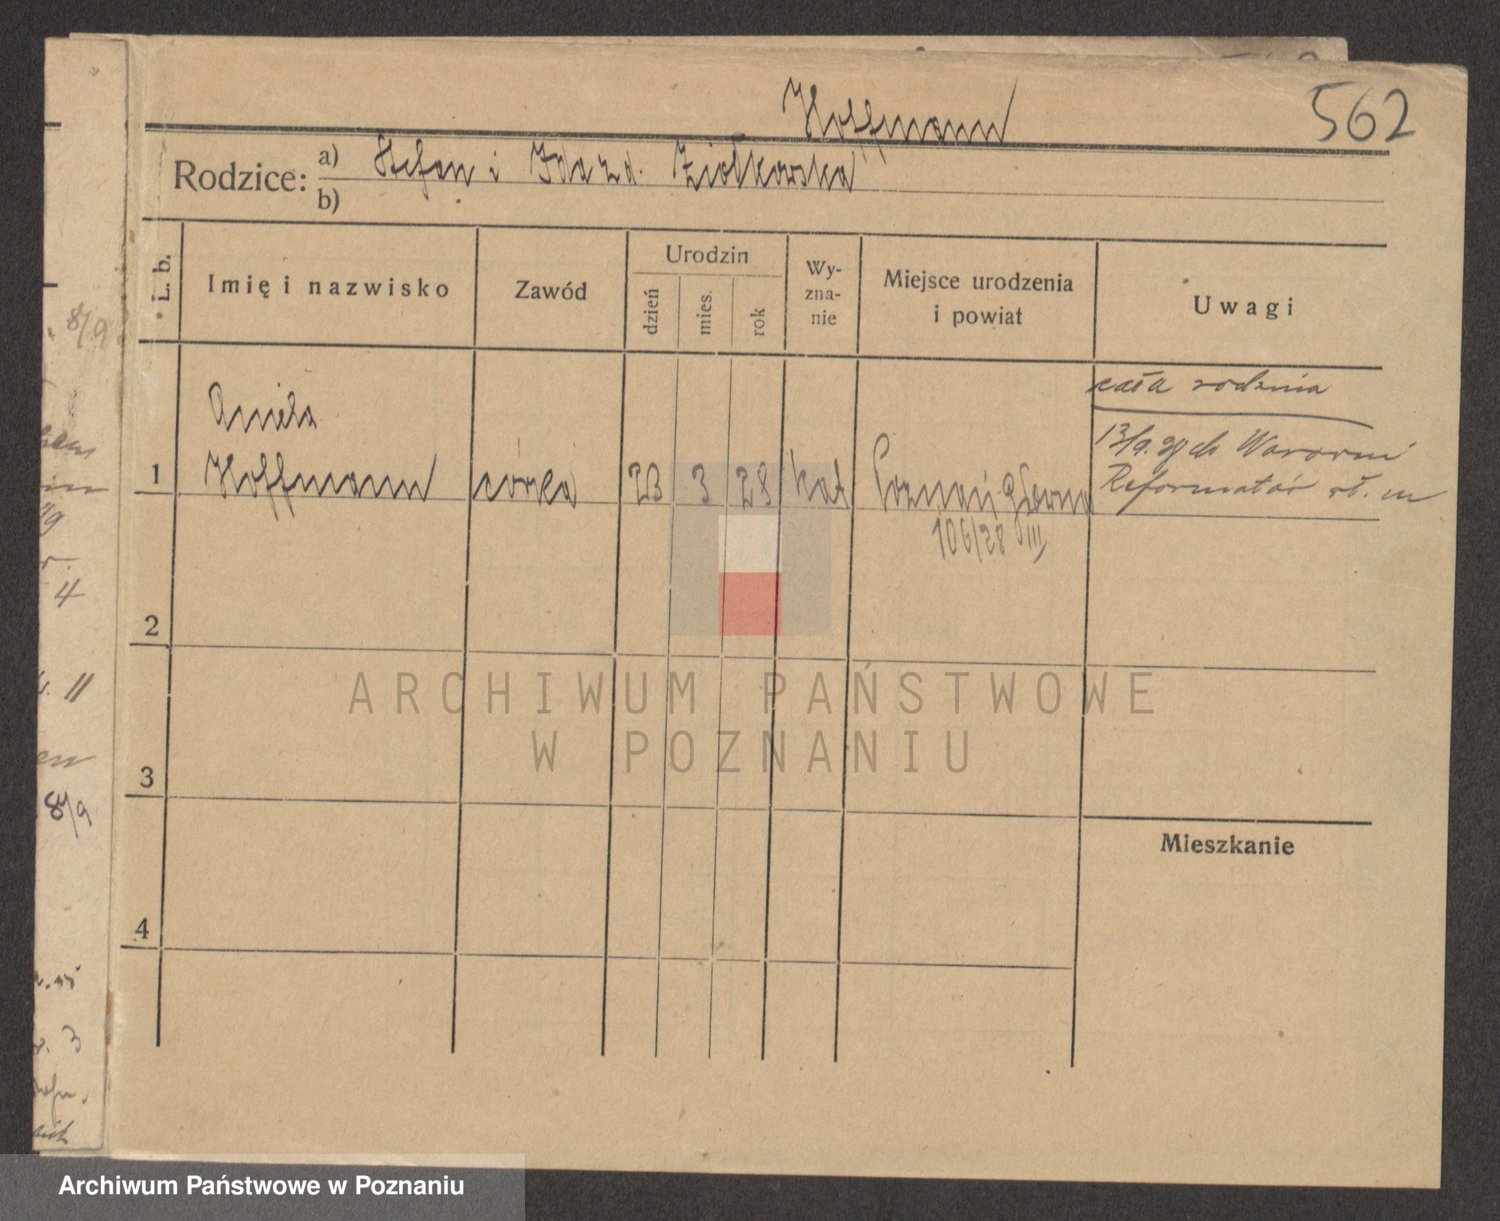 562
Hoffmann
Rodzice: a) Stefan i Ida z d. Ziołkowska
b)
L. b.
Imię i nazwisko
Zawód
Urodzin
dzień
mies.
rok
Wy-
zna-
nie
Miejsce urodzenia
i powiat
Uwagi
8/9
cała rodzina
Aniela
1 Hoffmann córka 23 3 28 kat Poznań-Główna
13/9. do
Reformatów
106/28 VIII
4
2
11
ARCHIWUM PAŃSTWOWE
W POZNANIU
3
8/9
Mieszkanie
4
3
Archiwum Państwowe w Poznaniu